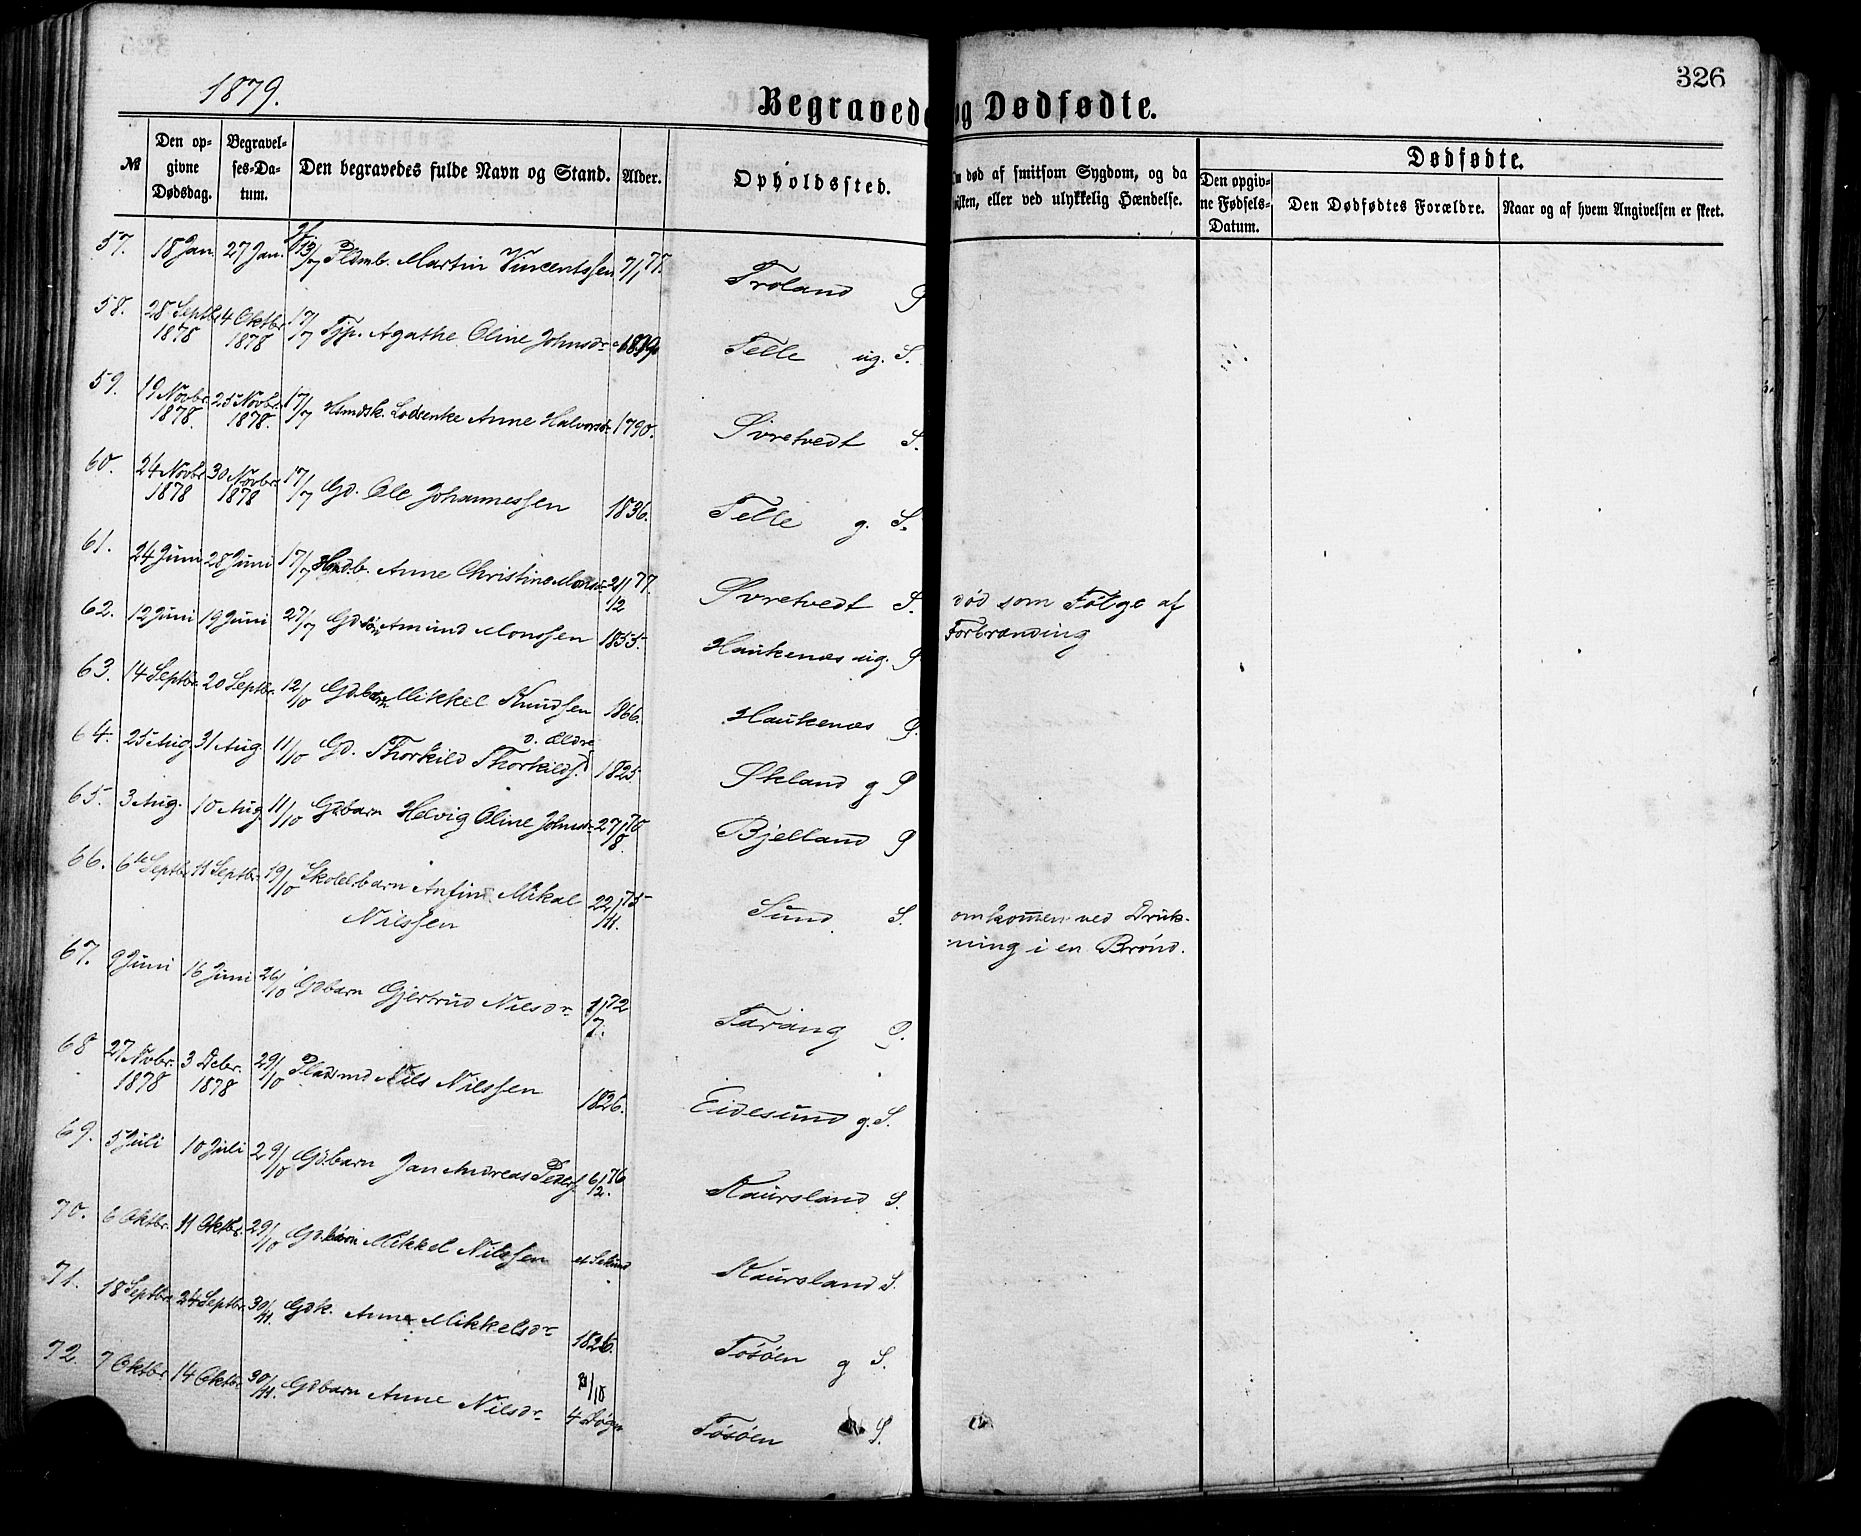 326
1879.
Begravede og Dødfødte.
№
Den op-
givne
Dødsdag.
Begravel-
ses-Da-
tum.
Den begravedes fulde Navn og Stand.
Alder.
Opholdssted.
død af smitsom Sygdom, og da
eller ved ulykkelig Hændelse.
Dødfødte.
Den opgiv-
ne Fødsels-
Datum.
Den Dødfødtes Forældre.
Naar og af hvem Angivelsen er skeet.
57. 18 Jan. 27 Jan. 13/7 Martin Vincentssen 7/1 77. Troland P
58. 28 Septbr 1878 4 Oktbr 1878 17/7 Tjp. Agathe Oline Johnsdr Telle ug. S.
59. 19 Novbr. 1878. 25 Novbr. 1878. 17/7 Anne Halvorsdr 1790. Svretvedt S.
60. 24 Novbr 1878 30 Novbr. 1878 17/7 Gd. Ole Johannessen 1836. Telle g. S.
61. 24 Juni 28 Juni 17/7 Anne Christine Monsdr 21/12 77. Svretvedt S. død som Følge af
Forbrænding
62. 12 Juni 19 Juni 27/7 Gdsøn Amund Monssen 1855. Haukenæs ug. P
63. 14 Septbr. 20 Septbr. 12/10 Gdbarn Mikkel Knudsen 1866. Haukenæs P.
64. 25 Aug. 31 Aug. 11/10 Gd. Thorkild Thorkilds. d. Ældre 1825 Skland g P
65. 3 Aug. 10 Aug 11/10 Gdbarn Helvig Oline Johnsdr 27/8 70 Bjelland P
66. 6te Septbr 11 Septbr. 19/10 Skolebarn Anfind Mikal
Nilssen 22/11. 75 Sund. S. omkommen ved Druk-
ning i en Brønd.
67. 9 Juni 16 Juni 26/10 Gdbarn Gjertrud Nilsdr 1/7. 72 Tarang P.
68 27 Novbr. 1878 3 Debr. 1878 29/10 Pladsmd Nils Nilssen 1826. Eidesund g. S.
69. 5 Juli 10 Juli 29/10 Gdbarn Jan Andreas Peders 6/2. 76 Kaursland S.
70. 6 Oktbr. 11 Oktbr. 29/10 Gdbarn Mikkel Nilssen Kaursland S.
71. 18 Septbr 24 Septbr. 30/11. Gdk. Anna Mikkelsdr 1826. Tøsøen g S.
72. 7 Oktbr 14 Oktbr. 30/11. Gdbarn Anne Nilsdr 4 Døgn Tøsøen S.